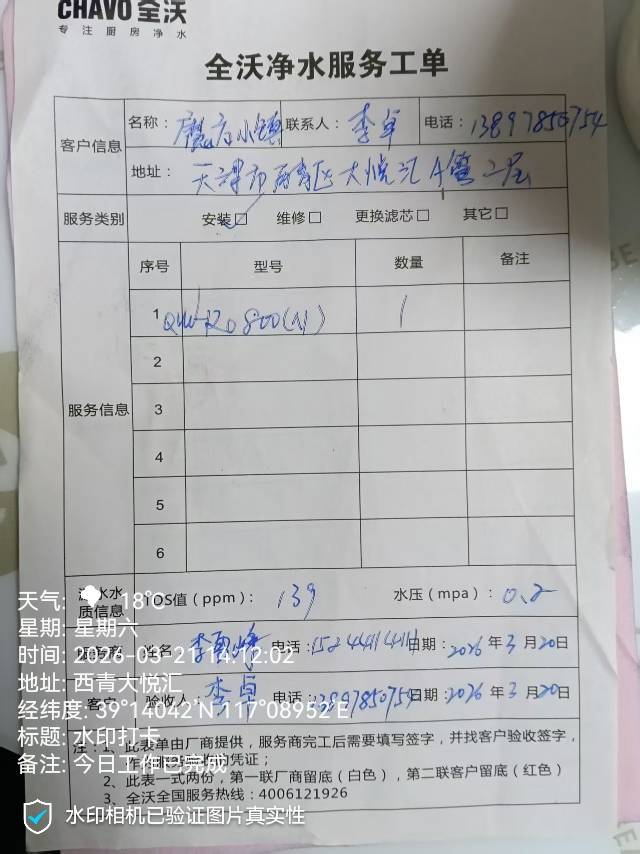 CHAVO 全沃
专注厨房净水
全沃净水服务工单
客户信息
名称：魔方小镇 联系人：李卓 电话：13897850754
地址：天津市西青区大悦汇A馆二层
服务类别 安装☑ 维修□ 更换滤芯□ 其它□
服务信息
序号 型号 数量 备注
1 QW-RO800(A1) 1
2
3
4
5
6
水水质信息 TDS值（ppm）：139 水压（mpa）：0.2
服务商 姓名： 电话： 日期：2026年3月20日
客户 验收人：李卓 电话：13897850754 日期：2026年3月20日
注：1、此表单由厂商提供，服务商完工后需要填写签字，并找客户验收签字，
作的凭证；
2、此表一式两份，第一联厂商留底（白色），第二联客户留底（红色）
3、全沃全国服务热线：4006121926
天气: 18°C
星期: 星期六
时间: 2026-03-21 14:12:02
地址: 西青大悦汇
经纬度: 39°14042'N 117°08952'E
标题: 水印打卡
备注: 今日工作已完成
水印相机已验证图片真实性